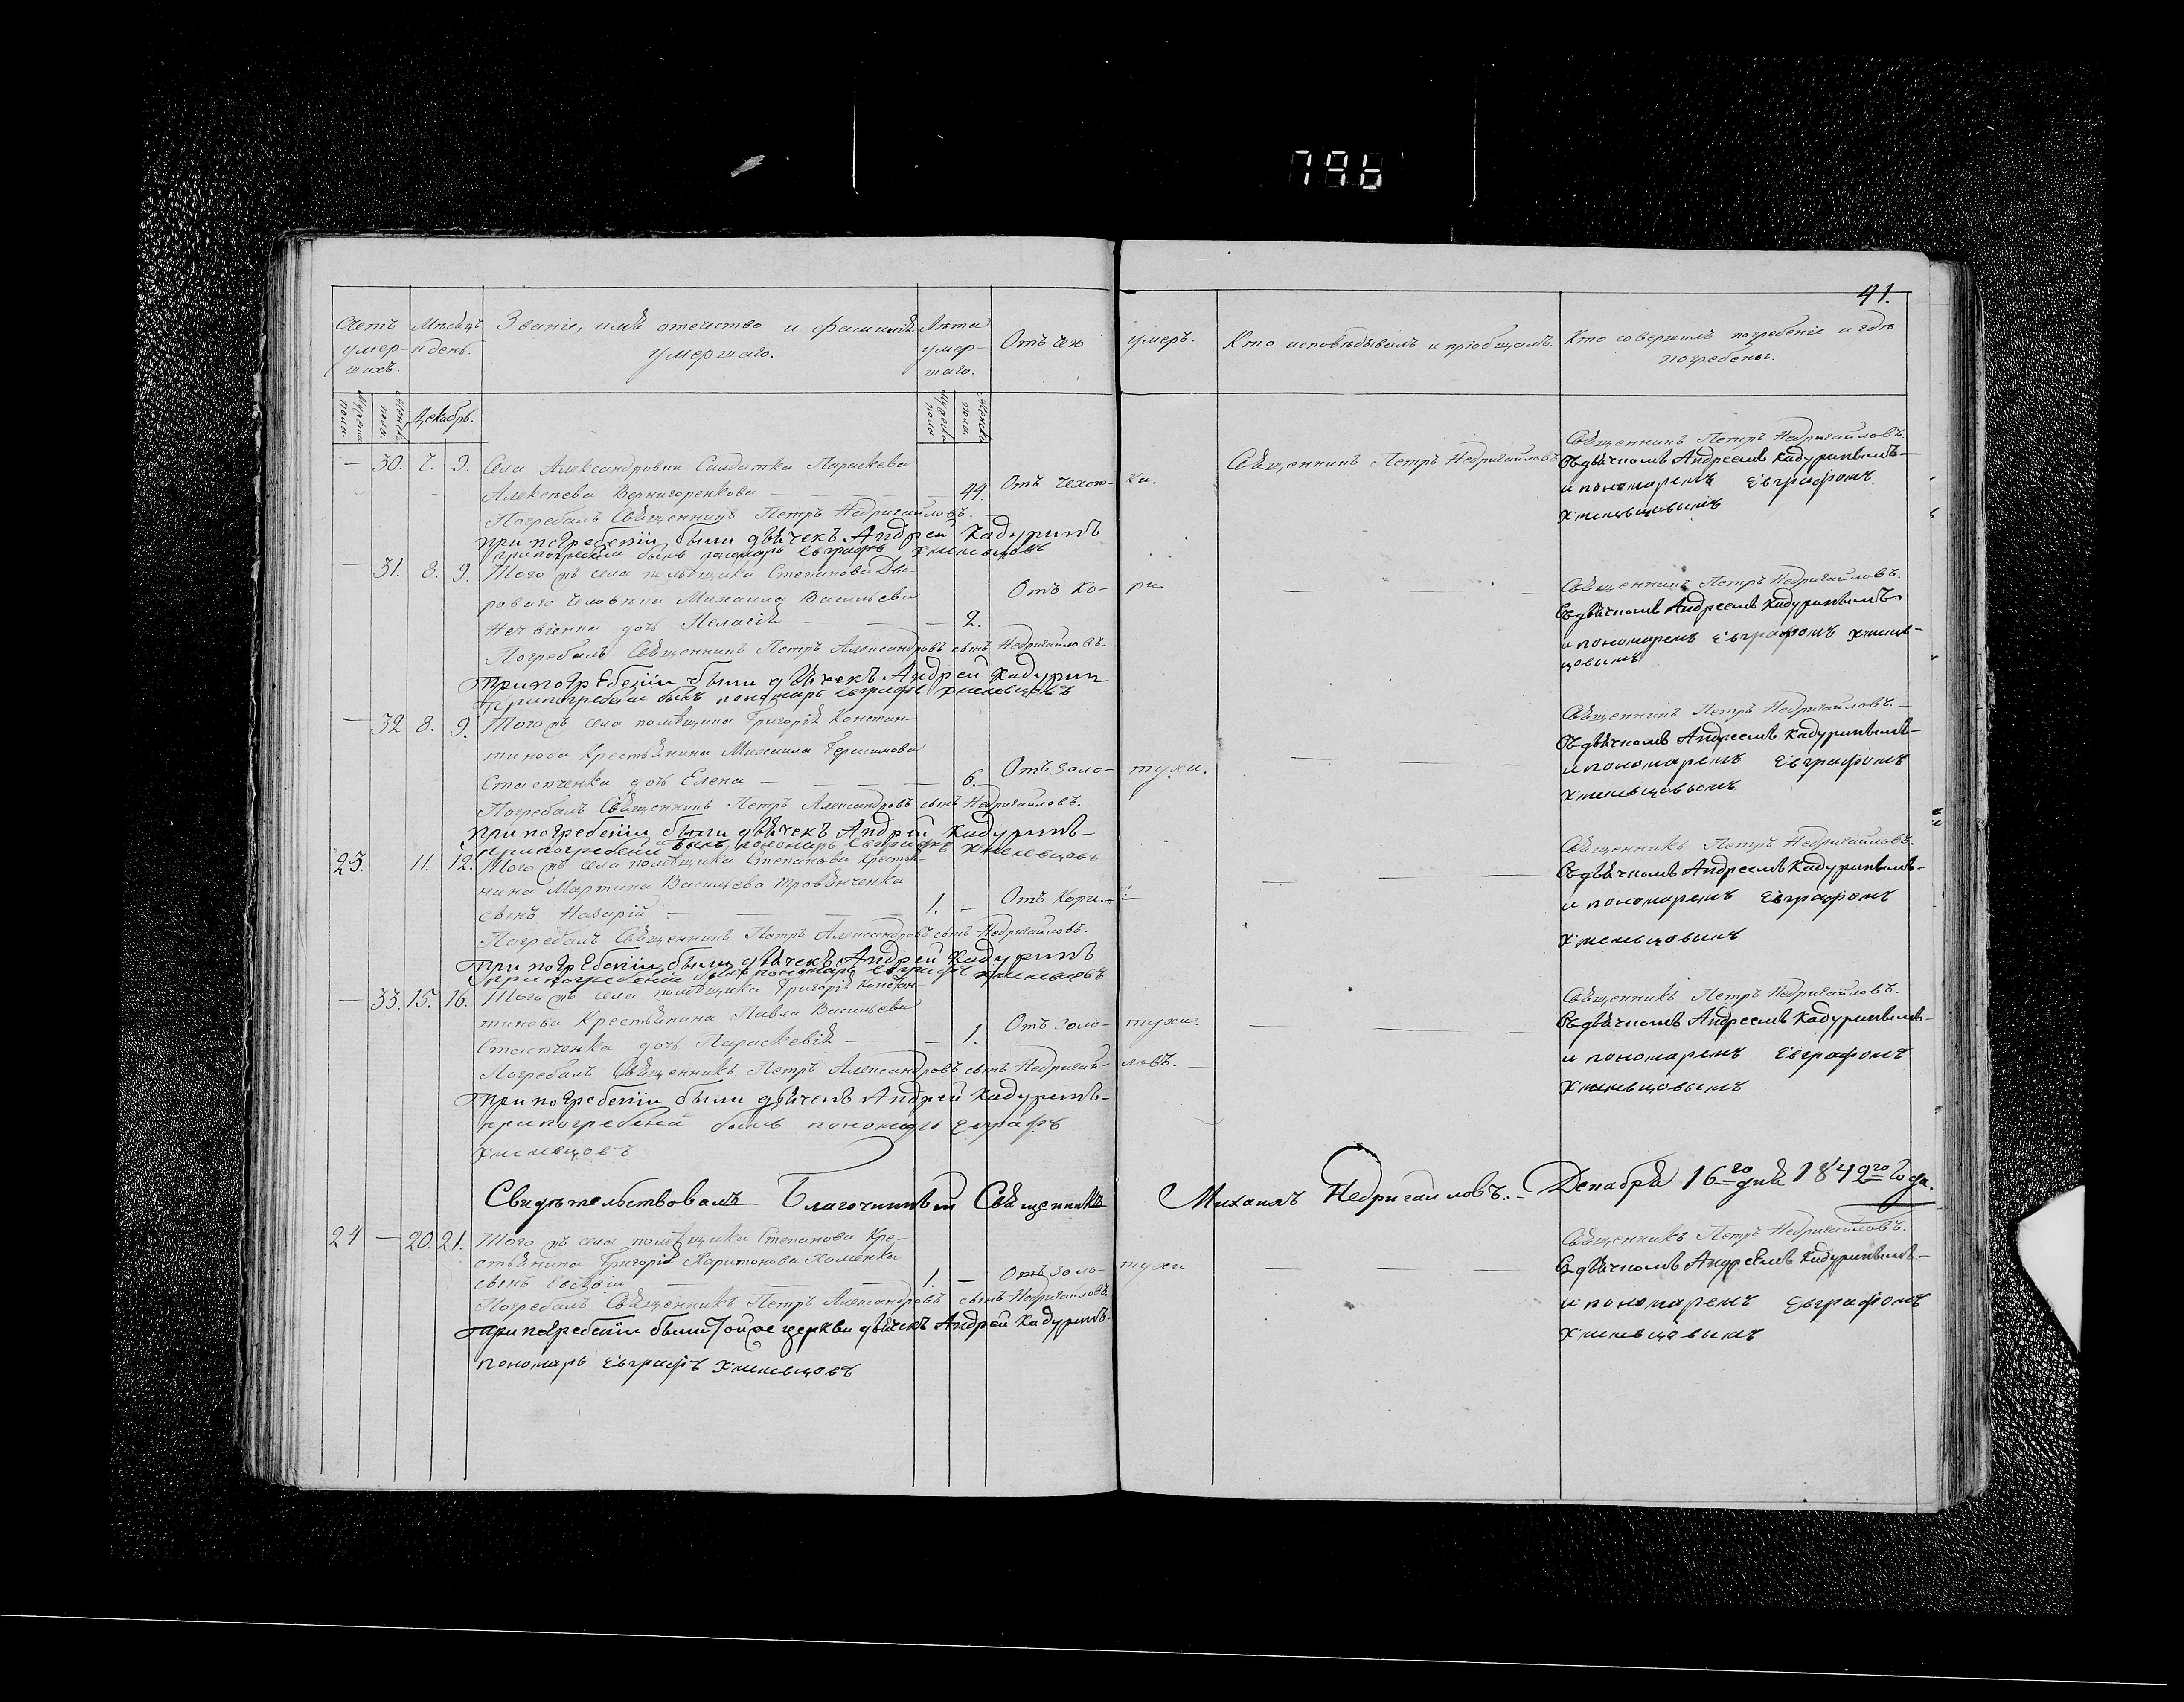 796
41.
Счетъ умер- шихъ.
Мѣсяцъ и день.
Званіе, имя отечество и фамилія умершаго.
Лѣта умер- шаго.
Отъ чего умеръ.
Кто исповѣдывалъ и пріобщалъ.
Кто совершилъ погребеніе и гдѣ погребены.
Мужеска пола.
Женска пола.
Декабрь.
Мужеска пола
Женска пола
— 30. 7. 9. Села Александровки Солдатка Параскева
Алексѣева Вернигоренкова — 44. Отъ чехот- ки.
Священникъ Петръ Недригайловъ
Погребалъ Священникъ Петръ Недригайловъ.
при погребеніи были дьячекъ Андрей Кадуринъ
при погребеніи былъ пономарь Евграфъ Хмельцовъ
Священникъ Петръ Недригайловъ.
Съ дьячкомъ Андреемъ Кадуринымъ
и пономаремъ Евграфомъ
Хмельцовымъ
— 31. 8. 9. Того жъ села помѣщика Степанова Дво-
роваго человѣка Михаила Васильева
дочь Пелагія — 2. Отъ ко- ри.
Погребалъ Священникъ Петръ Александровъ сынъ Недригайловъ.
при погребеніи были дьячекъ Андрей Кадурин
при погребеніи былъ пономарь Евграфъ Хмельцовъ
Священникъ Петръ Недригайловъ.
Съ дьячкомъ Андреемъ Кадуринымъ
и пономаремъ Евграфомъ Хмель-
цовымъ
— 32. 8. 9. Того жъ села помѣщика Григорія Констан-
тинова Крестьянина Михаила Герасимова
дочь Елена — 6. Отъ золо- тухи.
Погребалъ Священникъ Петръ Александровъ сынъ Недригайловъ.
при погребеніи были дьячекъ Андрей Кадуринъ
при погребеніи былъ пономарь Евграфъ Хмельцовъ
Священникъ Петръ Недригайловъ.
Съ дьячкомъ Андреемъ Кадуринымъ
и пономаремъ Евграфомъ
Хмельцовымъ
23. 11. 12. Того жъ села помѣщика Степанова Крестья-
нина Мартина Васильева
сынъ Назарій — 1. — Отъ Кори.
Погребалъ Священникъ Петръ Александровъ сынъ Недригайловъ.
при погребеніи были дьячекъ Андрей Кадуринъ
при погребеніи былъ пономарь Евграфъ Хмельцовъ
Священникъ Петръ Недригайловъ.
Съ дьячкомъ Андреемъ Кадуринымъ
и пономаремъ Евграфомъ
Хмельцовымъ
— 33. 15. 16. Того жъ села помѣщика Григорія Констан-
тинова Крестьянина Павла Васильева
дочь Параскевія — 1. Отъ золо- тухи.
Погребалъ Священникъ Петръ Александровъ сынъ Недригай- ловъ.
при погребеніи были дьячекъ Андрей Кадуринъ
при погребеніи былъ пономарь Евграфъ
Хмельцовъ
Священникъ Петръ Недригайловъ.
Съ дьячкомъ Андреемъ Кадуринымъ
и пономаремъ Евграфомъ
Хмельцовымъ
Свидѣтельствовалъ Благочинный Священникъ Михаилъ Недригайловъ. Декабря 16го дня 1842го года.
24 — 20. 21. Того жъ села помѣщика Степанова Кре-
стьянина Григорія Харитонова Хоменка
сынъ — 1. — Отъ золо- тухи
Погребалъ Священникъ Петръ Александровъ сынъ Недригайловъ.
при погребеніи были той же церкви дьячекъ Андрей Кадуринъ.
пономарь Евграфъ Хмельцовъ
Священникъ Петръ Недригайловъ.
Съ дьячкомъ Андреемъ Кадуринымъ
и пономаремъ Евграфомъ
Хмельцовымъ